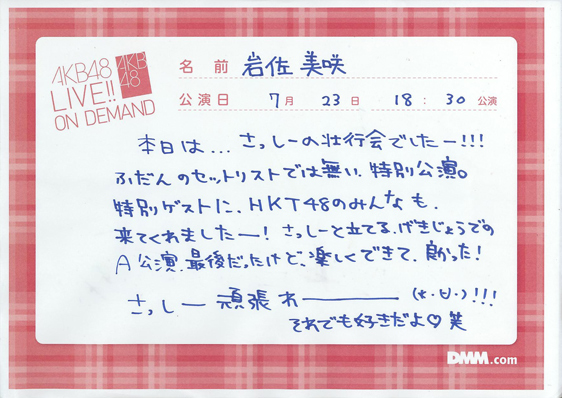 AKB48
LIVE!!
ON DEMAND
AKB
48
名 前 岩佐 美咲
公演日 7月 23日 18:30公演
本日は... さっしーの壮行会でしたー!!!
ふだんのセットリストでは無い、特別公演。
特別ゲストに、HKT48のみんなも、
来てくれましたー! さっしーと立てる、げきじょうでの
A公演、最後だったけど、楽しくできて、良かった!
さっしー 頑張れーーー (*・∀・)!!!
それでも好きだよ♡ 笑
DMM.com